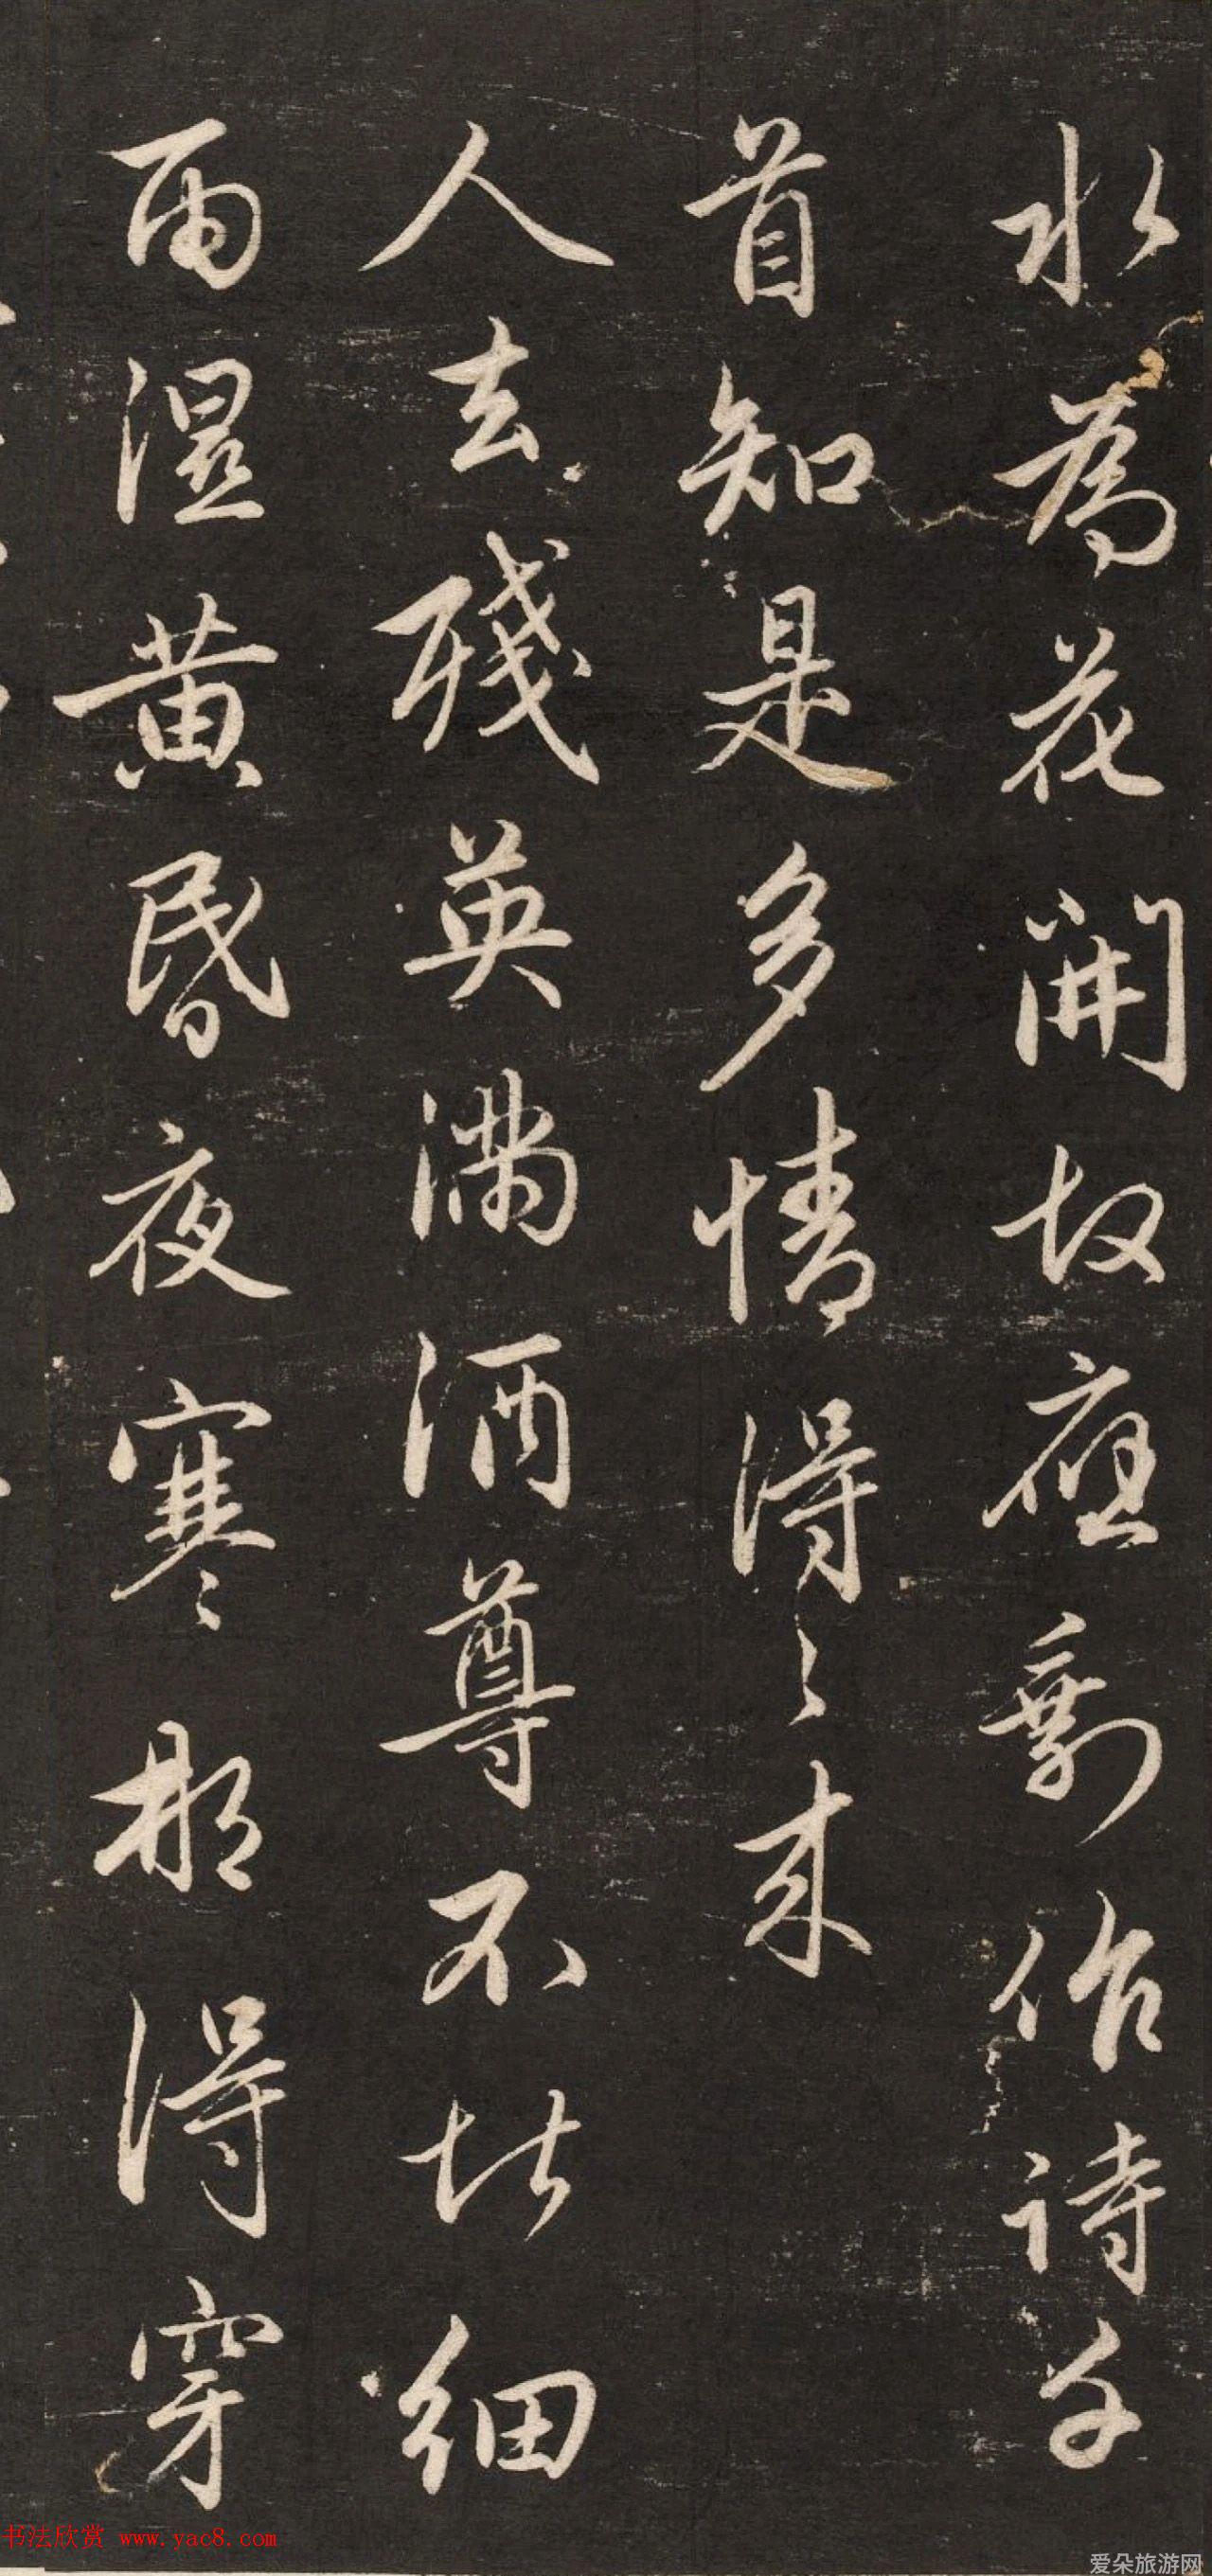 水為花開故應剩作詩多
首知是多情得得来
人去殘英满酒尊不堪細
雨濕黄昏夜寒那得穿
书法欣赏 www.yac8.com
爱朵旅游网